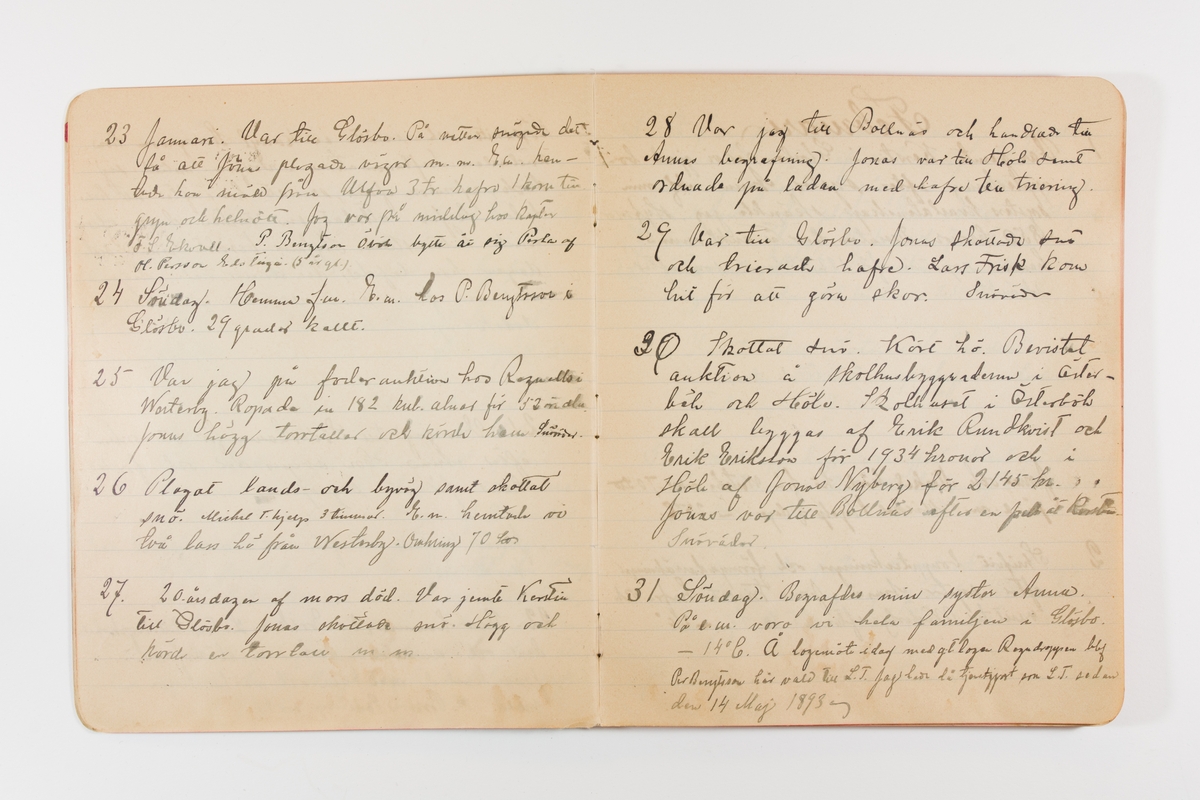 23 Januari. Var till Glösbo. På natten snögade det
så att Jonas plogade vägar m. m. E.m. hem-
tade han mäld från Utfva 3 tr hafre 1 korn till
gryn och helmält. Jag var från middag hos kapten
P. Bengtson Övde bytte åt sig Perla af
Ol. Persson (5 års gl.)
24 Söndag. Hemma f.m. E.m. hos P. Bengtsson i
Glösbo. 29 grader kallt.
25 Var jag på foderauktion hos Regnells i
Westerby. Ropade in 182 kub. alnar för 53 öre aln
Jonas högg torrtallar och körde hem Snöväder.
26 Plogat lands- och byväg samt skottat
snö. Michel T. hjelpt 3 timmar. E.m. hemtade vi
två lass hö från Westerby. Omkring 70
27. 20 årsdagen af mors död. Var jemte Kerstin
till Glösbo. Jonas skottade snö. Högg och
körde en torrtall m. m.
28 Var jag till Bollnäs och handlade till
Annas begrafning. Jonas var till Höle samt
ordnade på ladan med hafre till triering.
29 Var till Glösbo. Jonas skottade snö
och trierade hafre. Lars Frisk kom
hit för att göra skor. Snöväder
30 Skottat snö. Kört hö. Bevistat
auktion å skolhusbyggnaderna i Öster-
böle och Höle. Skolhuset i Österböle
skall byggas af Erik Rundkvist och
Erik Eriksson för 1934 kronor och i
Höle af Jonas Nyberg för 2145 kr.
Jonas var till Bollnäs efter en pels åt Kerstin
Snöväder.
31 Söndag. Begrafdes min syster Anna.
På e.m. voro vi hela familjen i Glösbo.
– 14° C. Å logemöt idag med gtlogen Regndroppen blef
Per Bengtsson här vald till L.T. Jag hade då tjenstgjort som L.T. sedan
den 14 Maj 1893